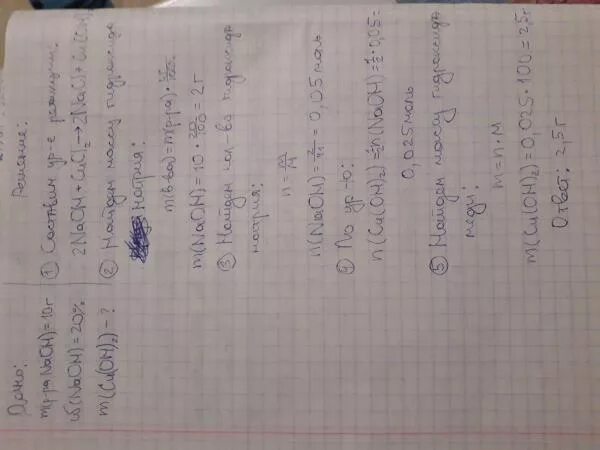 Дано:
m(р-ра NaOH)=10г
ω(NaOH)=20%
m(Cu(OH)₂)-?
Решение:
① Составим ур-е реакции:
2NaOH + CuCl₂ → 2NaCl + Cu(OH)₂
② Найдем массу гидроксида
натрия:
m(в-ва)=m(р-ра)·
m(NaOH)=10·20/100=2г
③ Найдем кол-во гидроксида
натрия:
n=m/M
n(NaOH)=2/41=0,05моль
④ По ур-ю:
n(Cu(OH)₂)=½n(NaOH)=½·0,05=
0,025моль
⑤ Найдем массу гидроксида
меди:
m=n·M
m(Cu(OH)₂)=0,025·100=2,5г
Ответ: 2,5г